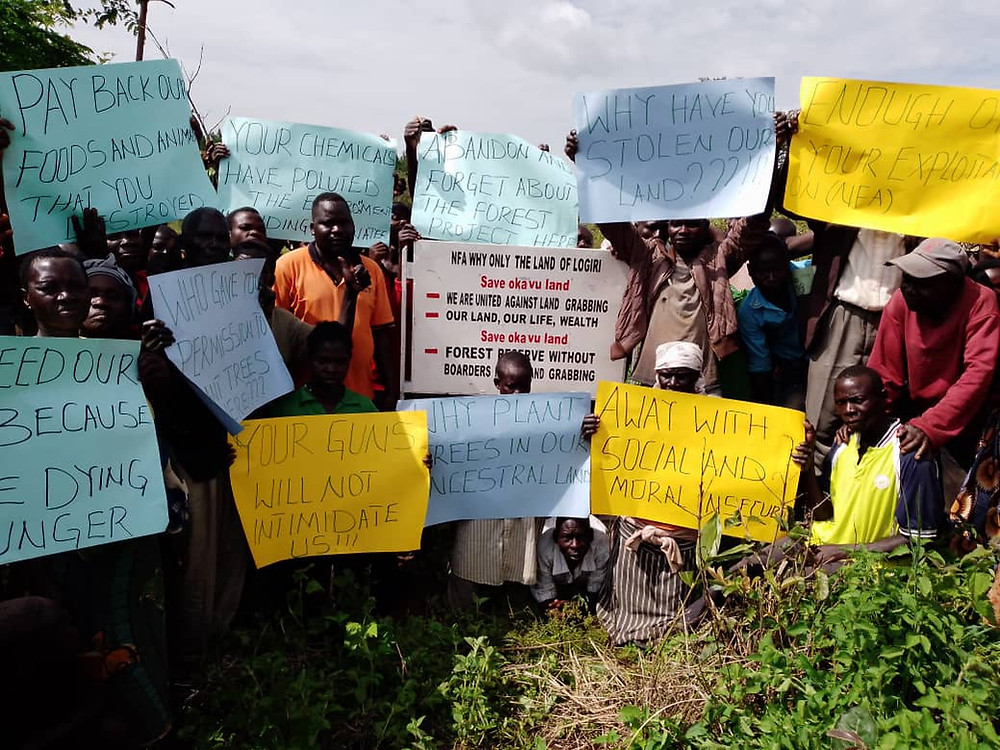 PAY BACK OUR
FOODS AND ANIMA
THAT YOU
DESTROYED
YOUR CHEMICALS
HAVE POLUTED
THE ENVIRONMENT
ABANDON AND
FORGET ABOUT
THE FOREST
PROJECT HERE
WHY HAVE YOU
STOLEN OUR
LAND????!!!
ENOUGH OF
YOUR EXPLOITA
ON (NFA)
WHO GAVE YOU
PERMISSION TO
TREES
NFA WHY ONLY THE LAND OF LOGIRI
Save okavu land
WE ARE UNITED AGAINST LAND GRABBING
OUR LAND, OUR LIFE, WEALTH
Save okavu land
FOREST RESERVE WITHOUT
BOARDERS LAND GRABBING
EED OUR
BECAUSE
E DYING
UNGER
YOUR GUNS
WILL NOT
INTIMIDATE
US!!!
WHY PLANT
TREES IN OUR
ANCESTRAL LAND
AWAY WITH
SOCIAL AND
MORAL INSECUR